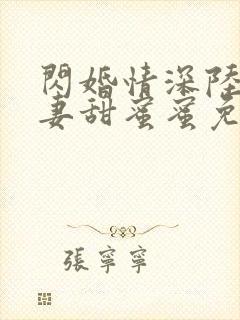 閃婚情深陸
妻甜蜜蜜免
張寧寧